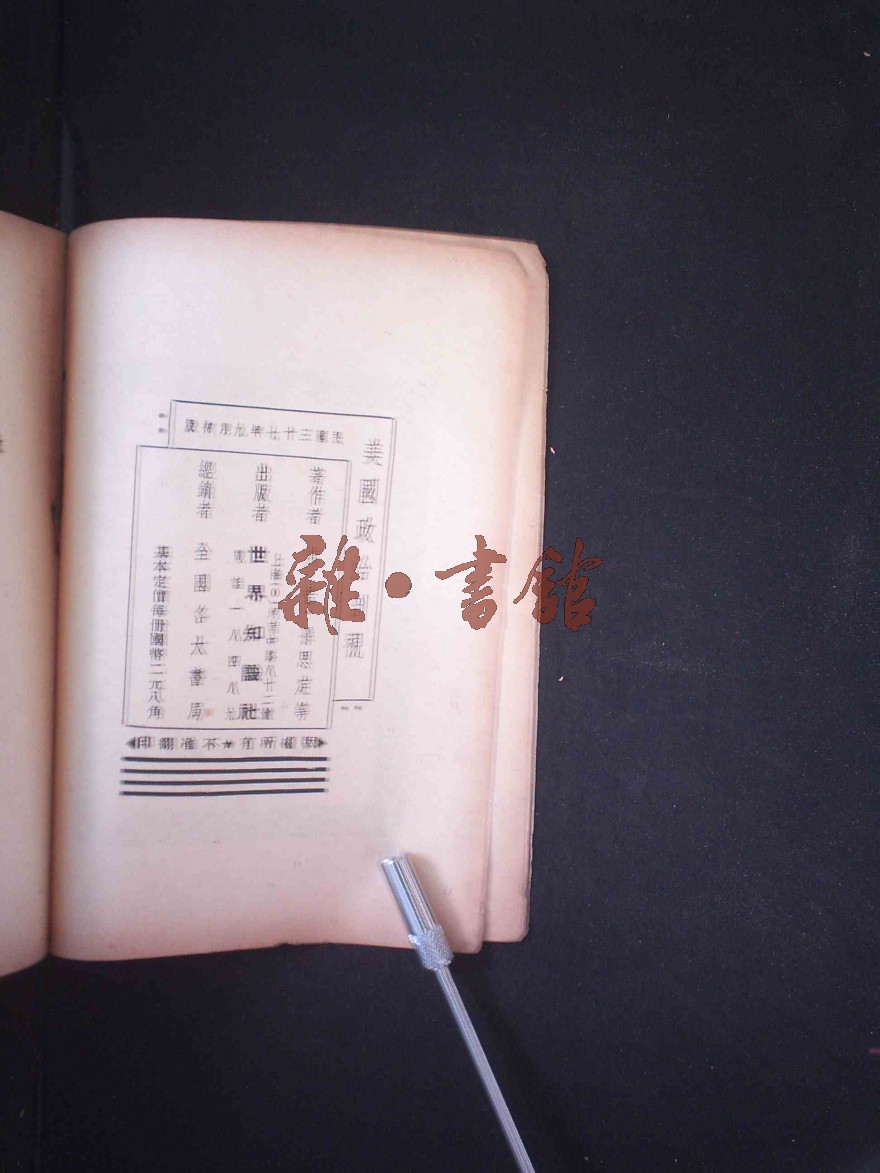 美國政治剖視
民國三十七年九月初版
著作者
思定等
出版者 世界知識社
電話一八四八九
經銷者 全國各大書局
基本定價每册國幣二元八角
版權所有★不准翻印
雜·書館